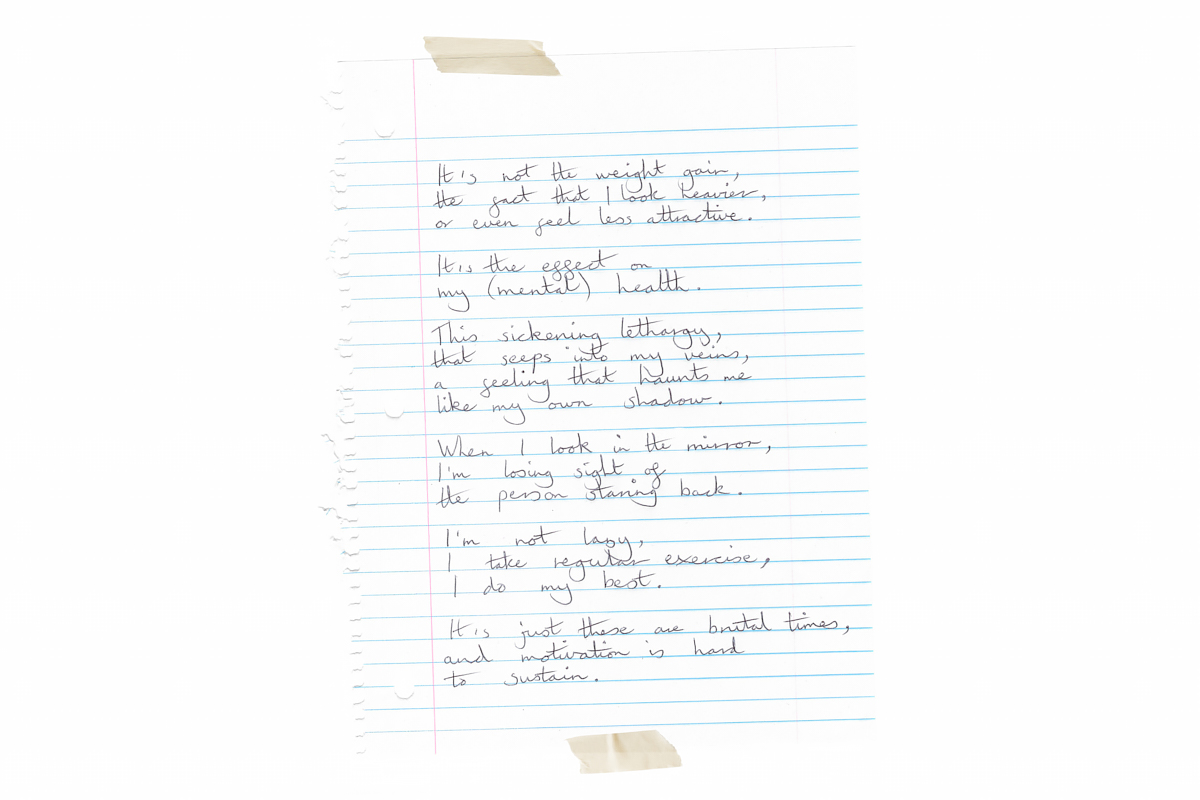 It is not the weight gain,
the fact that I look heavier,
or even feel less attractive.
It is the effect on
my (mental) health.
This sickening lethargy,
that seeps into my veins,
a feeling that haunts me
like my own shadow.
When I look in the mirror,
I'm losing sight of
the person staring back.
I'm not lazy,
I take regular exercise,
I do my best.
It is just these are brutal times,
and motivation is hard
to sustain.